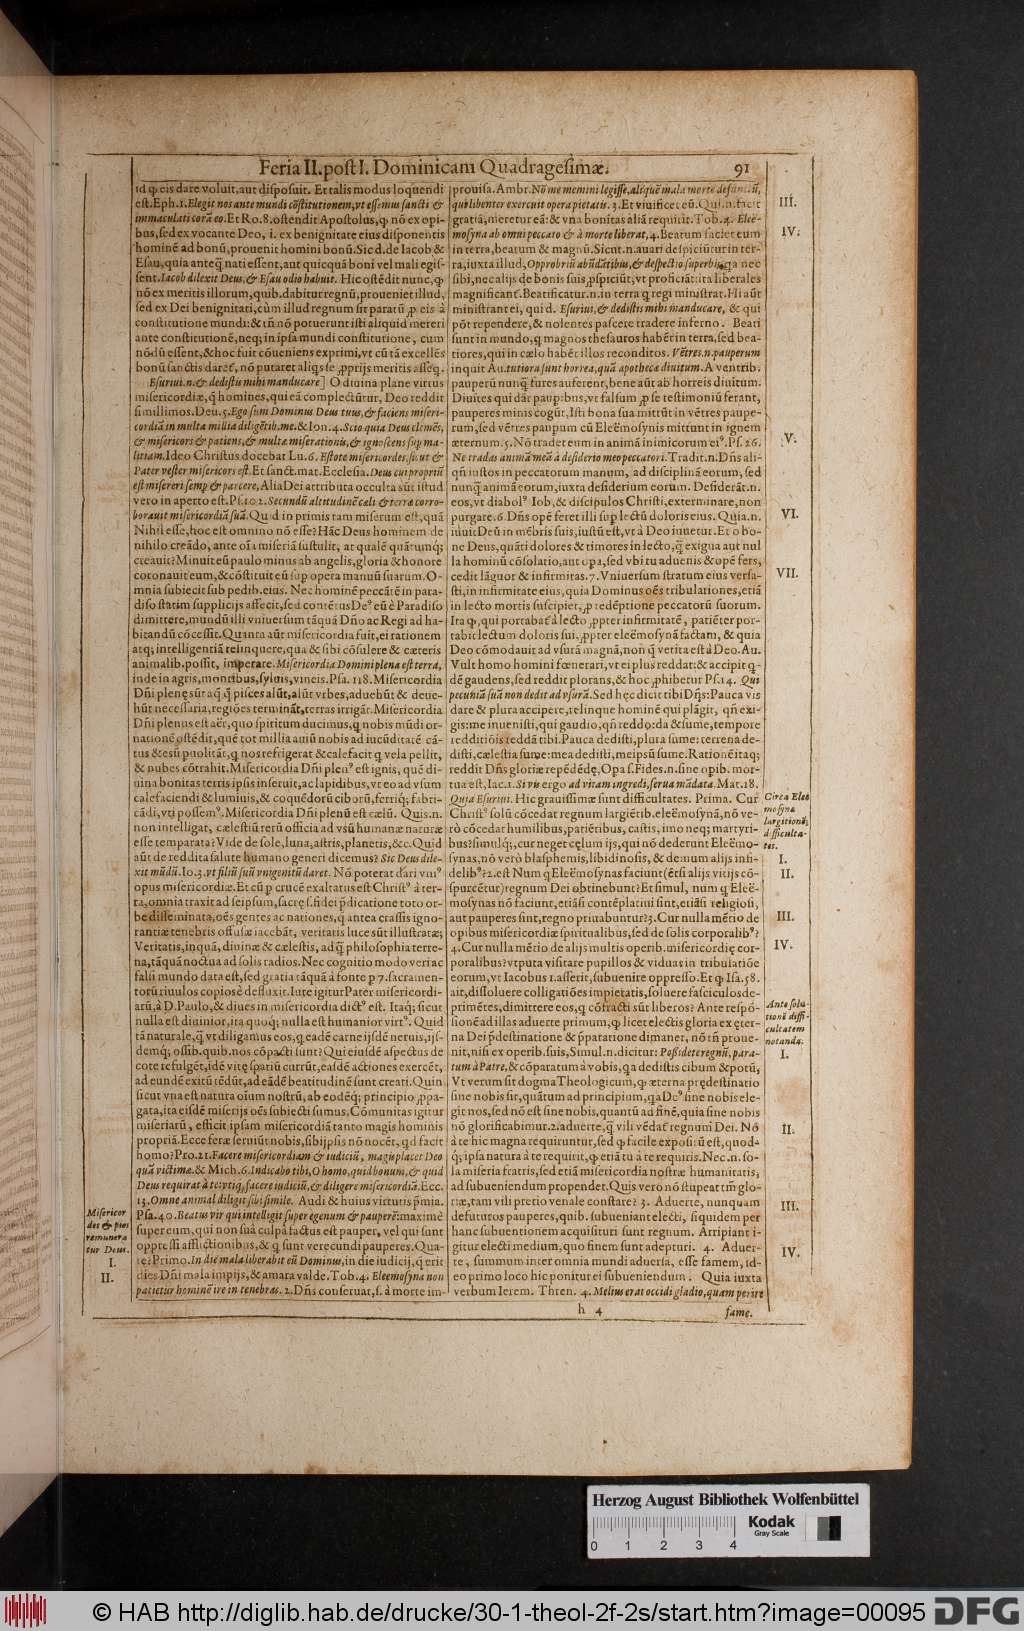 Feria II. post I. Dominicam Quadragesimæ. 91
id ꝙ eis dare voluit, aut disposuit. Et talis modus loquendi
est. Eph. 1. Elegit nos ante mundi cõstitutionem, vt essemus sancti &
immaculati corã eo. Et Ro. 8. ostendit Apostolus, ꝙ nõ ex opi-
bus, sed ex vocante Deo, i. ex benignitate eius disponentis
hominẽ ad bonũ, prouenit homini bonũ. Sic d. de Iacob &
Esau, quia anteq̃ nati essent, aut quicquã boni vel mali egis-
sent. Iacob dilexit Deus, & Esau odio habuit. Hic ostẽdit nunc, ꝙ
nõ ex meritis illorum, quib. dabitur regnũ, proueniet illud,
sed ex Dei benignitati, cùm illud regnum sit paratũ ꝓ eis à
constitutione mundi: & tñ nõ potuerunt isti aliquid mereri
ante constitutionẽ, neq; in ipsa mundi constitutione, cum
nõdũ essent, & hoc fuit cõueniens exprimi, vt cũ tã excellẽs
bonũ sanctis daret, nõ putaret aliqs se ꝓprijs meritis asseq̃.
Esuriui. n. & dedistis mihi manducare] O diuina plane virtus
misericordiæ, q̃ homines, qui eã complectũtur, Deo reddit
simillimos. Deu. 5. Ego sum Dominus Deus tuus, & faciens miseri-
cordiã in multa millia diligẽtib. me. & Ion. 4. Scio quia Deus clemẽs,
& misericors & patiens, & multæ miserationis, & ignoscens sup ma-
litiam. Ideo Christus docebat Lu. 6. Estote misericordes, sicut &
Pater vester misericors est. Et sanct. mat. Ecclesia. Deus cui propriũ
est misereri semp & parcere, Alia Dei attributa occulta sũt istud
vero in aperto est. Ps. 102. Secundũ altitudinẽ cæli à terra corro-
borauit misericordiã suã. Quid in primis tam miserum est, quã
Nihil esse, hoc est omnino nõ esse? Hãc Deus hominem de
nihilo creãdo, ante oẽs miseriã sustulit, at qualẽ quãtumq;
creauit? Minuit eũ paulo minus ab angelis, gloria & honore
coronauit eum, & cõstituit eũ sup opera manuũ suarum. O-
mnia subiecit sub pedib. eius. Nec hominẽ peccãtẽ in para-
diso statim supplicijs affecit, sed contẽtus De⁹ eũ è Paradiso
dimittere, mundũ illi vniuersum tãquã Dño ac Regi ad ha-
bitandũ cõcessit. Quanta aũt misericordia fuit, ei rationem
atq; intelligentiã relinquere, qua & sibi cõsulere & cæteris
animalib. possit, imperare. Misericordia Domini plena est terra,
inde in agris, montibus, syluis, vineis. Psa. 118. Misericordia
Dñi plenę sũt aq̃ q̃ pisces alũt, alũt vrbes, aduehũt & deue-
hũt necessaria, regiões terminãt, terras irrigãt. Misericordia
Dñi plenus est aër, quo spiritum ducimus, q̃ nobis mũdi or-
nationẽ ostẽdit, quẽ tot millia auiũ nobis ad iucũditatẽ cã-
tus & esũ puolitãt, q̃ nos refrigerat & calefacit q̃ vela pellit,
& nubes cõtrahit. Misericordia Dñi plen⁹ est ignis, quẽ di-
uina bonitas terris ipsis inseruit, ac lapidibus, vt eo ad vsum
calefaciendi & luminis, & coquẽdorũ ciborũ, ferriq; fabri-
cãdi, vti possem⁹. Misericordia Dñi plenũ est cælũ. Quis. n.
non intelligat, cælestiũ rerũ officia ad vsũ humanæ naturæ
esse temparata? Vide de sole, luna, astris, planetis, &c. Quid
aũt de reddita salute humano generi dicemus? Sic Deus dile-
xit mũdũ. Io. 3. vt filiũ suũ vnigenitũ daret. Nõ poterat dari vni⁹
opus misericordiæ. Et cũ p crucẽ exaltatus est Christ⁹ à ter-
ra, omnia traxit ad seipsum, sacrę s. fidei p̃dicatione toto or-
be disseminata, oẽs gentes ac nationes, q̃ antea crassis igno-
rantiæ tenebris offusæ iacebãt, veritatis luce sũt illustratæ;
Veritatis, inquã, diuinæ & cælestis, ad q̃ philosophia terre-
na, tãquã noctua ad solis radios. Nec cognitio modo veri ac
falsi mundo data est, sed gratia tãquã à fonte p 7. sacramen-
torũ riuulos copiosè defluxit. Iure igitur Pater misericordi-
arũ, à D. Paulo, & diues in misericordia dict⁹ est. Itaq; sicut
nulla est diuinior, ita quoq; nulla est humanior virt⁹. Quid
tã naturale, q̃ vt diligamus eos, q̃ eadẽ carne ijsdẽ neruis, ijs-
demq; ossib. quib. nos cõpacti sunt? Qui eiusdẽ aspectus de
cote refulgẽt, idẽ vitę spatiũ currũt, easdẽ actiones exercẽt,
ad eundẽ exitũ tẽdũt, ad eãdẽ beatitudinẽ sunt creati. Quin
sicut vna est natura oĩum nostrũ, ab eodẽq; principio ꝓpa-
gata, ita eisdẽ miserijs oẽs subiecti sumus. Cõmunitas igitur
miseriarũ, efficit ipsam misericordiã tanto magis hominis
propriã. Ecce feræ seruiũt nobis, sibi ipsis nõ nocẽt, qd facit
homo? Pro. 21. Facere misericordiam & iudiciũ, magis placet Deo
quã victimæ. & Mich. 6. Indicabo tibi, O homo, quid bonum, & quid
Deus requirat à te: vtiq; facere iudiciũ, & diligere misericordiã. Ecc.
13. Omne animal diligit sibi simile. Audi & huius virtutis p̃mia.
Psa. 40. Beatus vir qui intelligit super egenum & pauperẽ: maximè
super eum, qui non suã culpã factus est pauper, vel qui sunt
oppressi afflictionibus, & q̃ sunt verecundi pauperes. Qua-
re? Primo. In die mala liberabit eũ Dominus, in die iudicij, q̃ erit
dies Dñi mala impijs, & amara valde. Tob. 4. Eleemosyna non
patietur hominẽ ire in tenebras. 2. Dñs conseruat, s. à morte im-
Misericor
des & pios
remunera
tur Deus.
I.
II.
prouisa. Ambr. Nõ me memini legisse, aliquẽ mala morte defunctũ,
qui libenter exercuit opera pietatis. 3. Et viuificet eũ. Qui. n. facit
gratiã, meretur eã: & vna bonitas aliã requirit. Tob. 4. Eleë-
mosyna ab omni peccato & à morte liberat, 4. Beatum faciet eum
in terra, beatum & magnũ. Sicut. n. auari despiciũtur in ter-
ra, iuxta illud, Opprobriũ abũdãtibus, & despectio superbis, qa nec
sibi, nec alijs de bonis suis ꝓspiciũt, vt proficiãt: ita liberales
magnificant. Beatificatur. n. in terra q̃ regi ministrat. Hi aũt
ministrant ei, qui d. Esuriui, & dedistis mihi manducare, & qui
põt rependere, & nolentes pascere tradere inferno. Beati
sunt in mundo, q̃ magnos thesauros habẽt in terra, sed bea-
tiores, qui in cælo habẽt illos reconditos. Vẽtres. n. pauperum
inquit Au. tutiora sunt horrea, quã apothecæ diuitum. A ventrib.
pauperũ nunq̃ fures auferent, bene aũt ab horreis diuitum.
Diuites qui dãt paupibus, vt falsum ꝓ se testimoniũ ferant,
pauperes minis cogũt, Isti bona sua mittũt in vẽtres paupe-
rum, sed vẽtres paupum cũ Eleëmosynis mittunt in ignem
æternum. 5. Nõ tradet eum in animã inimicorum ei⁹. Ps. 26.
Ne tradas animã meã à desiderio meo peccatori. Tradit. n. Dñs ali-
qñ iustos in peccatorum manum, ad disciplinã eorum, sed
nunq̃ animã eorum, iuxta desiderium eorum. Desiderãt. n.
eos, vt diabol⁹ Iob, & discipulos Christi, exterminare, non
purgare. 6. Dñs opẽ feret illi sup lectũ doloris eius. Quia. n.
iuuit Deũ in mẽbris suis, iustũ est, vt à Deo iuuetur. Et o bo-
ne Deus, quãti dolores & timores in lecto, q̃ exigua aut nul
la hominũ cõsolatio, aut opa, sed vbi tu aduenis & opẽ fers,
cedit lãguor & infirmitas. 7. Vniuersum stratum eius versa-
sti, in infirmitate eius, quia Dominus oẽs tribulationes, etiã
in lecto mortis suscipiet, ꝓ redẽptione peccatorũ suorum.
Ita ꝙ, qui portabat à lecto ꝓpter infirmitatẽ, patiẽter por-
tabit lectum doloris sui, ꝓpter eleëmosynã factam, & quia
Deo cõmodauit ad vsurã magnã, non q̃ verita est à Deo. Au.
Vult homo homini fœnerari, vt ei plus reddat: & accipit q-
dẽ gaudens, sed reddit plorans, & hoc ꝓhibetur Ps. 14. Qui
pecuniã suã non dedit ad vsurã. Sed hęc dicit tibi Dñs: Pauca vis
dare & plura accipere, relinque hominẽ qui plãgit, qñ exi-
gis: me inuenisti, qui gaudio, qñ reddo: da & sume, tempore
redditiõis reddã tibi. Pauca dedisti, plura sume: terrena de-
disti, cælestia sume: mea dedisti, meipsũ sume. Rationẽ itaq;
reddit Dñs gloriæ repẽdẽdę, Opa s. Fides. n. sine opib. mor-
tua est, Iac. 1. Si vis ergo ad vitam ingredi, serua mãdata. Mat. 18.
Quia Esuriui. Hic grauissimæ sunt difficultates. Prima. Cur
Christ⁹ solũ cõcedat regnum largiẽtib. eleëmosynã, nõ ve-
rò cõcedat humilibus, patiẽtibus, castis, imo neq; martyri-
bus? simulq;, cur neget cęlum ijs, qui nõ dederunt Eleëmo-
synas, nõ verò blasphemis, libidinosis, & demum alijs infi-
delib⁹? 2. est Num q̃ Eleëmosynas faciunt (etsi alijs vitijs cõ-
spurcẽtur) regnum Dei obtinebunt? Et simul, num q̃ Eleë-
mosynas nõ faciunt, etiãsi contẽplatiui sint, etiãsi religiosi,
aut pauperes sint, regno priuabuntur? 3. Cur nulla mẽtio de
opibus misericordiæ spiritualibus, sed de solis corporalib⁹?
4. Cur nulla mẽtio de alijs multis operib. misericordię cor-
poralibus? vtputa visitare pupillos & viduas in tribulatiõe
eorum, vt Iacobus 1. asserit, subuenire oppresso. Et ꝙ Isa. 58.
ait, dissoluere colligatiões impietatis, soluere fasciculos de-
primẽtes, dimittere eos, q̃ cõfracti sũt liberos? Ante respõ-
sionẽ ad illas aduerte primum, ꝙ licet electis gloria ex ęter-
na Dei p̃destinatione & p̃paratione dimanet, nõ tñ proue-
nit, nisi ex operib. suis, Simul. n. dicitur: Possidete regnũ, para-
tum à Patre, & cõparatum à vobis, qa dedistis cibum & potũ,
Vt verum sit dogma Theologicum, ꝙ æterna prędestinatio
sine nobis sit, quãtum ad principium, qa De⁹ sine nobis ele-
git nos, sed nõ est sine nobis, quantũ ad finẽ, quia sine nobis
nõ glorificabimur. 2. aduerte, q̃ vili vẽdat regnum Dei. Nõ
à te hic magna requiruntur, sed ꝙ facile exposi ũ est, quod-
q; ipsa natura à te requirit, ꝙ etiã tu à te requiris. Nec. n. so-
la miseria fratris, sed etiã misericordia nostræ humanitatis,
ad subueniendum propendet. Quis vero nõ stupeat tm̃ glo-
riæ, tam vili precio venale constare? 3. Aduerte, nunquam
defuturos pauperes, quib. subueniant electi, siquidem per
hanc subuentionem acquisituri sunt regnum. Arripiant i-
gitur electi medium, quo finem sunt adepturi. 4. Aduer-
te, summum inter omnia mundi aduersa, esse famem, id-
eo primo loco hic ponitur ei subueniendum. Quia iuxta
verbum Ierem. Thren. 4. Melius erat occidi gladio, quam perire
III.
IV.
V.
VI.
VII.
Circa Elee
mosynæ
largitionẽ,
difficulta-
tes.
I.
II.
III.
IV.
Ante solu-
tionẽ diffi-
cultatem
notandæ.
I.
II.
III.
IV.
h 4
fame.
Herzog August Bibliothek Wolfenbüttel
Kodak
Gray Scale
0 1 2 3 4
© HAB http://diglib.hab.de/drucke/30-1-theol-2f-2s/start.htm?image=00095
DFG